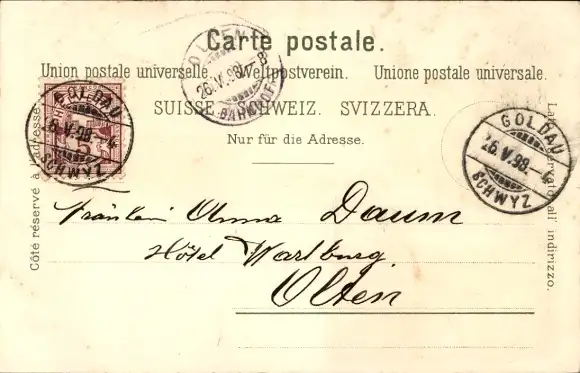 Carte postale.
Union postale universelle. Weltpostverein. Unione postale universale.
SUISSE. SCHWEIZ. SVIZZERA.
Nur für die Adresse.
Côté réservé à l'adresse.
Lato riservato all' indirizzo.
OLTEN
26.V.98.-8
BAHNHOF
GOLDAU
26.V.98.-4
SCHWYZ
GOLDAU
26.V.98.-4
SCHWYZ
Fräulein Anna Daum
Hôtel Wartburg
Olten